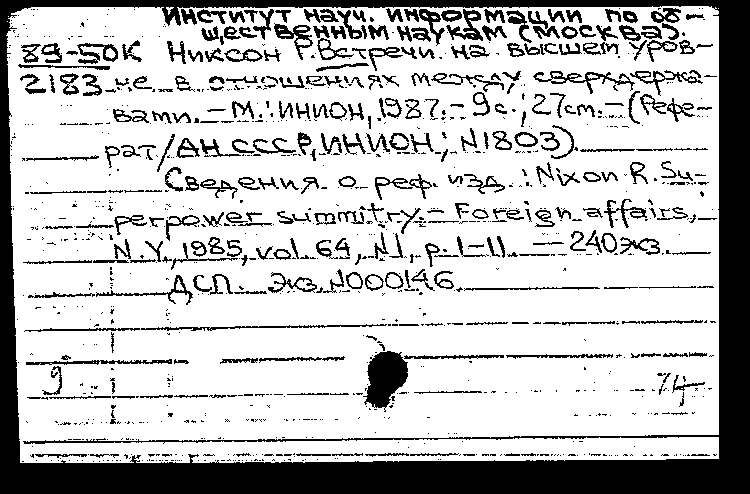 Институт науч. информации по об-
щественным наукам (Москва).
89-50К Никсон Р. Встречи на высшем уров-
2183 не в отношениях между сверхдержа-
вами. – М.: ИНИОН, 1987. – 9 с.; 27 см. – (Рефе-
рат / АН СССР, ИНИОН; N1803).
Сведения о реф. изд.: Nixon R. Su-
perpower summitry. – Foreign affairs,
N.Y., 1985, vol. 64, N1, p. 1–11. — 240 экз.
ДСП. Экз. N000146
9
74